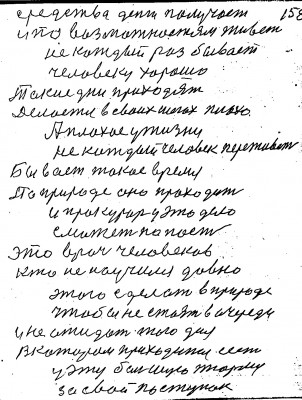 средства дети получают 158
что возможностям живет
не каждый раз бывает
человеку хорошо
Такие дни приходят
Делается в своих ногах плохо.
А плохое у жизни
не каждый человек переживет
Бывает такое время
По природе оно проходит
и прокурор у это дело
сможет попасть
это врач человеков
кто не научился давно
этого сделать в природе
чтоб и не стоять в очереди
и не ожидать того дня
В котором приходится сесть
у эту большую тюрьму
за свой поступок